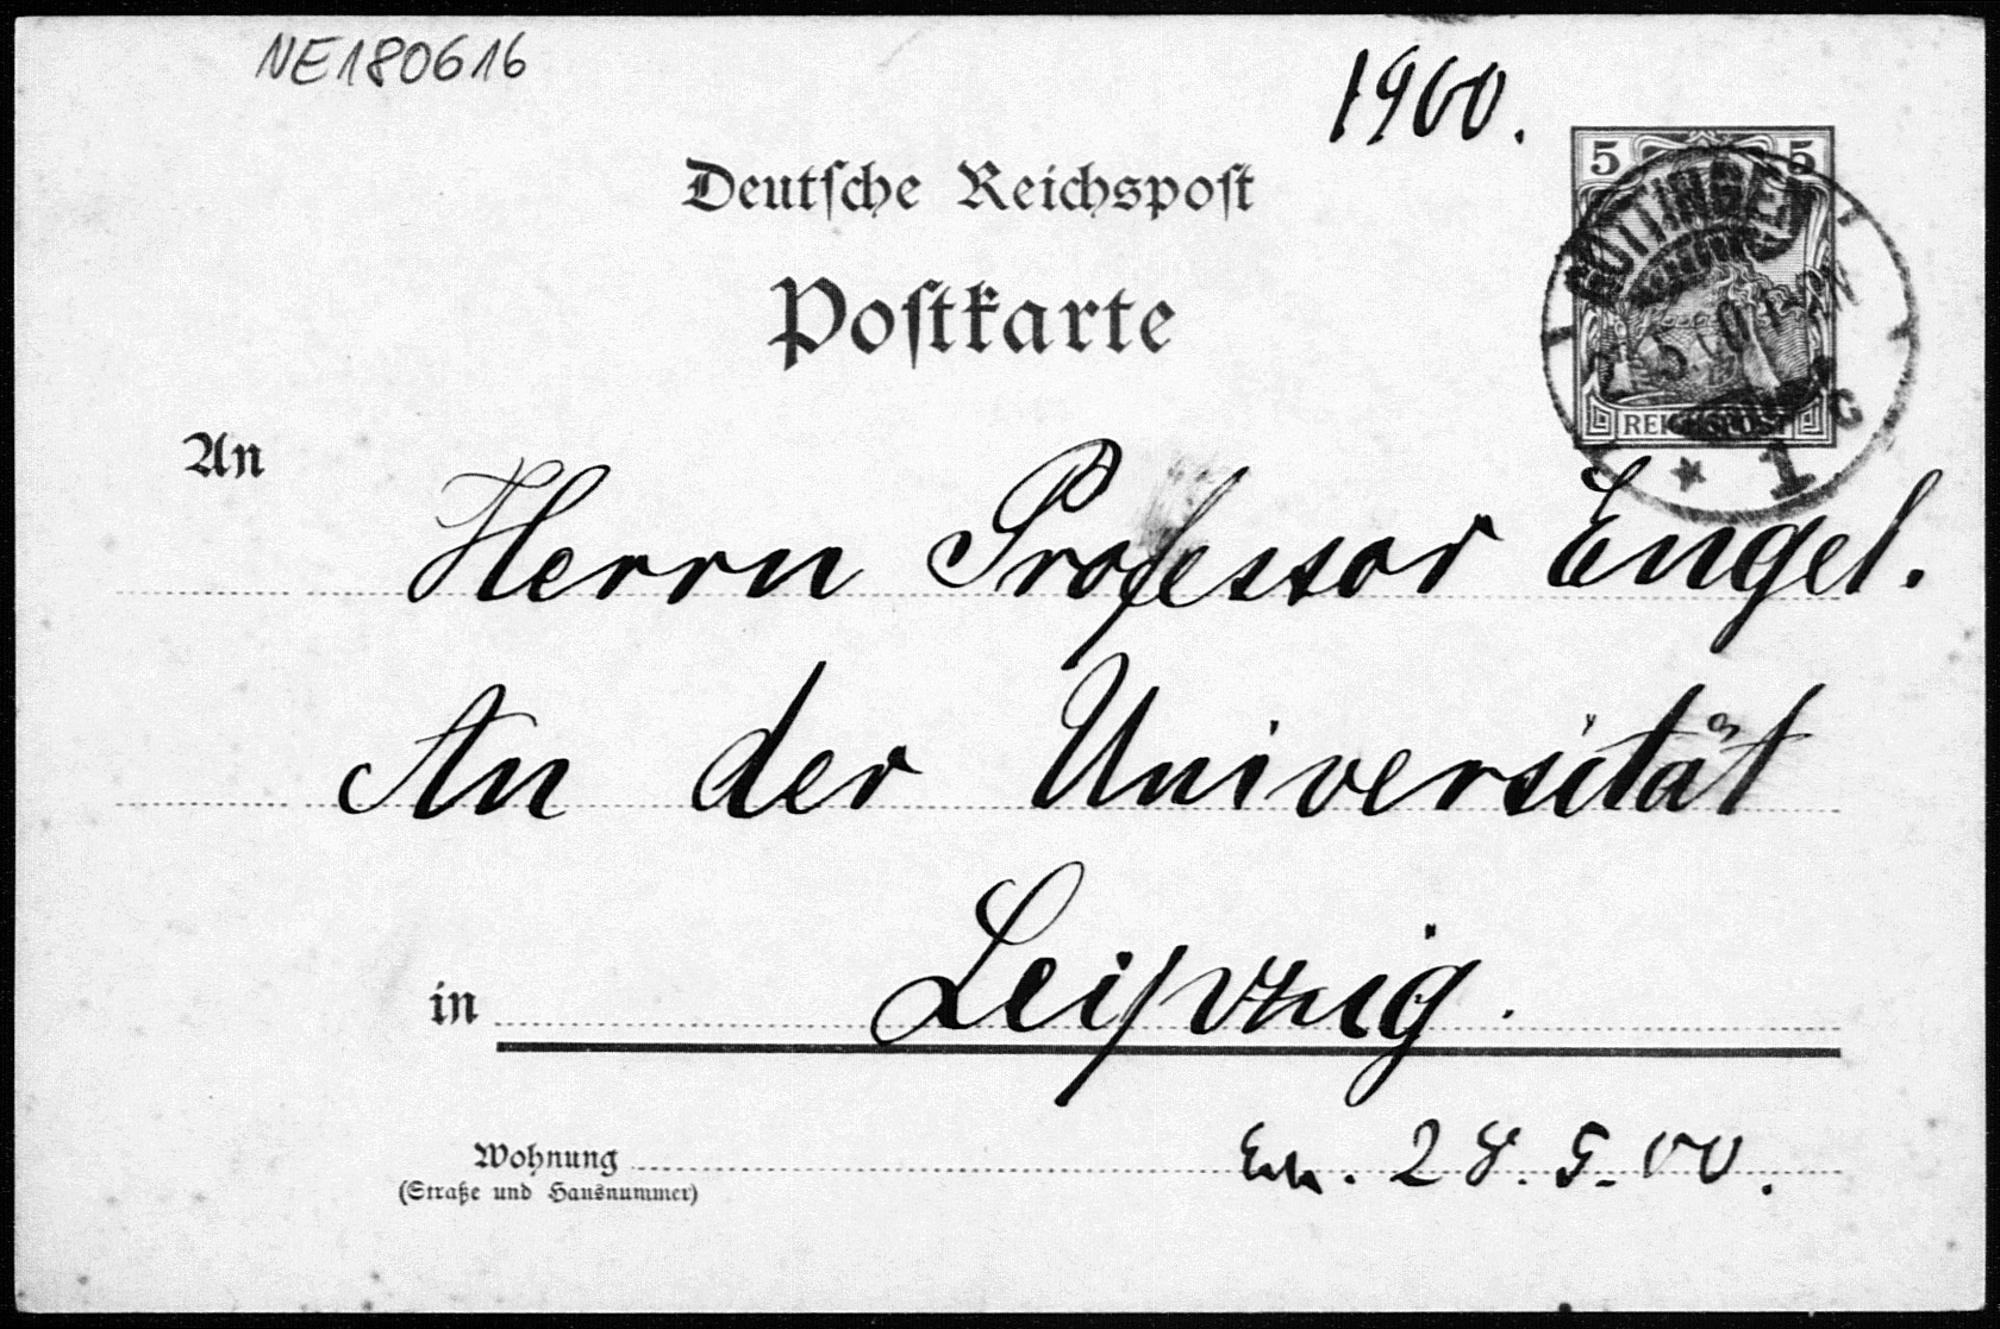 NE180616
1900.
Deutsche Reichspost
Postkarte
5 5
GÖTTINGEN
REICHSPOST
* 1 C
An
Herrn Professor Engel.
An der Universität
in Leipzig.
28. 5. 00.
Wohnung
(Straße und Hausnummer)